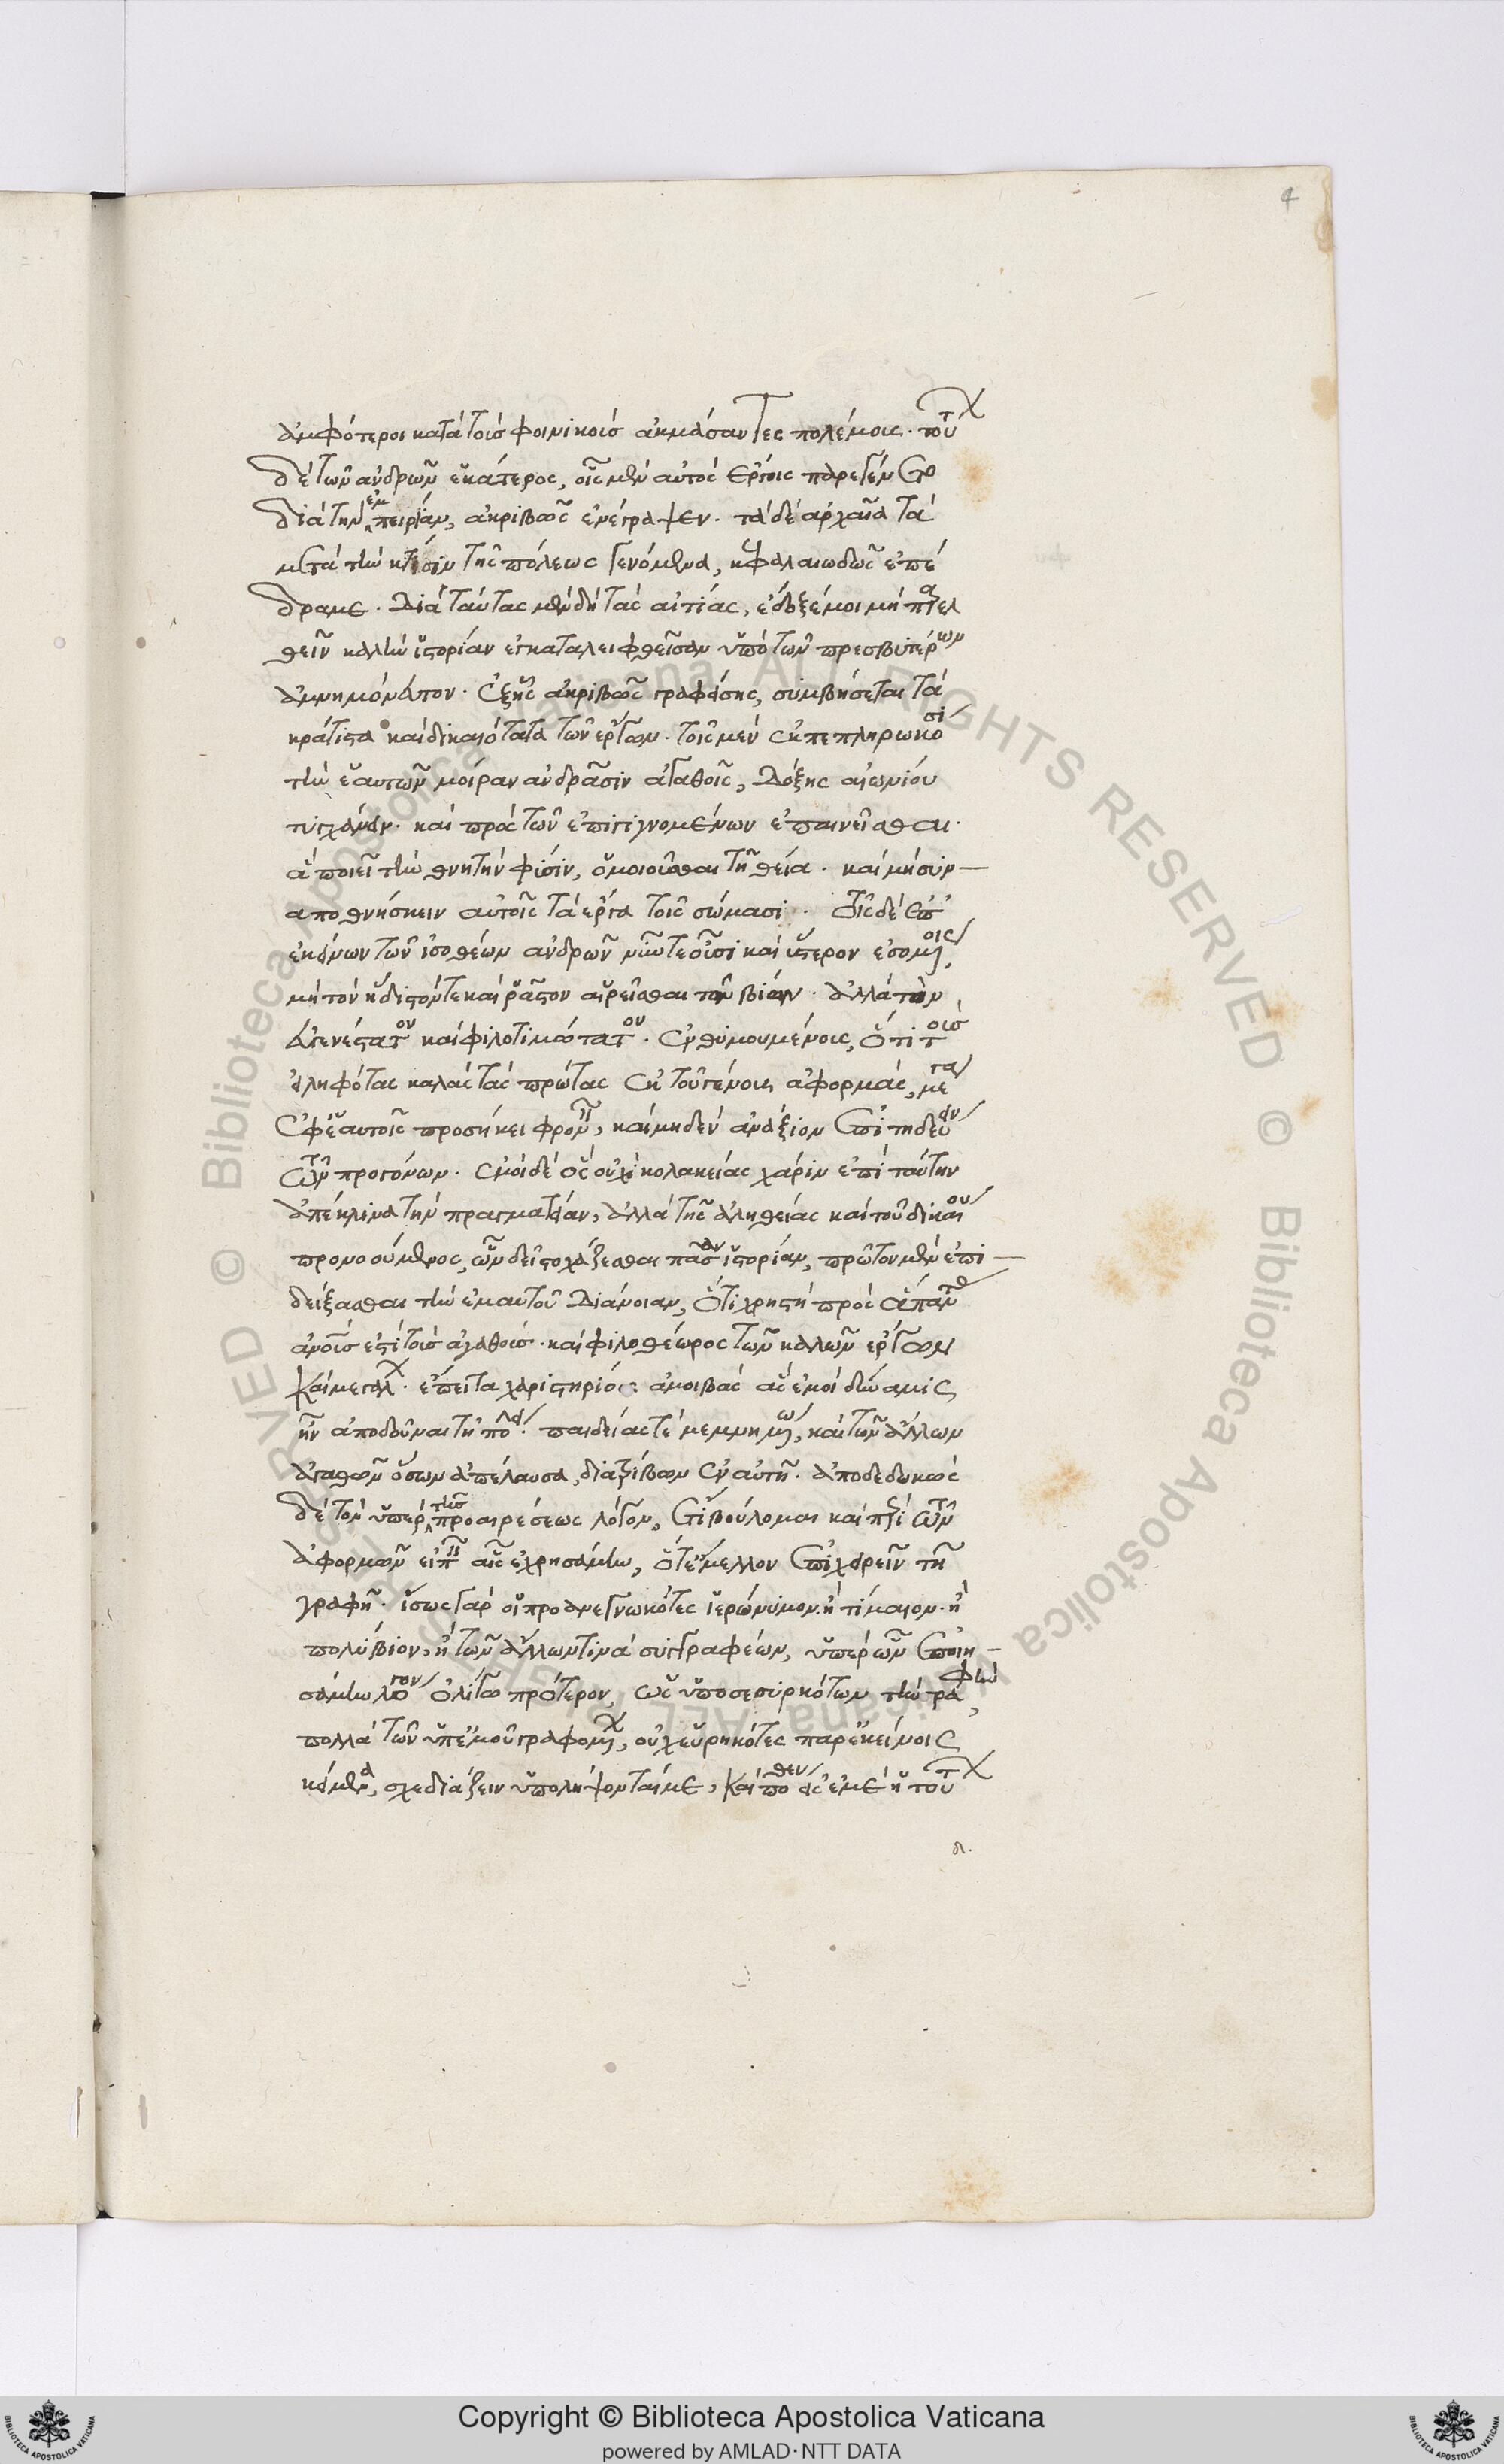 4
ἀμφότεροι κατὰ τοὺς φοινικοὺς ἀκμάσαντες πολέμους. τούτων
δὲ τῶν ἀνδρῶν ἑκάτερος, οἷς μὲν αὐτὸς ἔργοις παρεγένετο
διὰ τὴν ἐμπειρίαν, ἀκριβῶς ἀνέγραψεν. τὰ δὲ ἀρχαῖα τὰ
μετὰ τὴν κτίσιν τῆς πόλεως γενόμενα, κεφαλαιωδῶς ἐπέ
δραμε. Διὰ ταύτας μὲν δὴ τὰς αἰτίας, ἔδοξέ μοι μὴ παρελ
θεῖν καλὴν ἱστορίαν ἐγκαταλειφθεῖσαν ὑπὸ τῶν πρεσβυτέρων
ἀμνημόνευτον. ἐξ ἧς ἀκριβῶς γραφείσης, συμβήσεται τὰ
κράτιστα καὶ δικαιότατα τῶν ἔργων. τοῖς μὲν ἐκπεπληρωκόσι
τὴν ἑαυτῶν μοῖραν ἀνδράσιν ἀγαθοῖς, δόξης αἰωνίου
τυγχάνειν. καὶ πρὸς τῶν ἐπιγιγνομένων ἐπαινεῖσθαι.
ἃ ποιεῖ τὴν θνητὴν φύσιν, ὁμοιοῦσθαι τῇ θείᾳ. καὶ μὴ συν–
αποθνήσκειν αὐτοῖς τὰ ἔργα τοῖς σώμασι. τοῖς δὲ ἀπ'
ἐκείνων τῶν ἰσοθέων ἀνδρῶν νῦν τε οὖσι καὶ ὕστερον ἐσομένοις,
μὴ τὸν ἥδιστόν τε καὶ ῥᾷστον αἱρεῖσθαι τῶν βίων. ἀλλὰ τὸν
εὐγενέστατον καὶ φιλοτιμότατον. ἐνθυμουμένους, ὅτι τοὺς
εἰληφότας καλὰς τὰς πρώτας ἐκ τοῦ γένους ἀφορμάς, μέγα
ἐφ' ἑαυτοῖς προσήκει φρονεῖν, καὶ μηδὲν ἀνάξιον ἐπιτηδεύειν
τῶν προγόνων. ἐμοὶ δὲ ὃς οὐχὶ κολακείας χάριν ἐπὶ ταύτην
ἀπέκλινα τὴν πραγματείαν, ἀλλὰ τῆς ἀληθείας καὶ τοῦ δικαίου
προνοούμενος, ὧν δεῖ στοχάζεσθαι πᾶσαν ἱστορίαν, πρῶτον μὲν ἐπι–
δείξασθαι τὴν ἐμαυτοῦ διάνοιαν, ὅτι χρηστὴ πρὸς ἅπαντας
ἀνους ἐστὶ τοὺς ἀγαθοὺς. καὶ φιλοθέωρος τῶν καλῶν ἔργων
καὶ μεγάλων. ἔπειτα χαριστηρίους ἀμοιβὰς ἃς ἐμοὶ δύναμις
ἦν ἀποδοῦναι τῇ πόλει. παιδείας τε μεμνημένῳ, καὶ τῶν ἄλλων
ἀγαθῶν ὅσων ἀπέλαυσα, διατρίβων ἐν αὐτῇ. ἀποδεδωκὼς
δὲ τὸν ὑπὲρ τῆς προαιρέσεως λόγον, ἔτι βούλομαι καὶ περὶ τῶν
ἀφορμῶν εἰπεῖν αἷς ἐχρησάμην, ὅτε ἔμελλον ἐπιχειρεῖν τῇ
γραφῇ. ἴσως γὰρ οἱ προανεγνωκότες ἱερώνυμον. ἢ τίμαιον. ἢ
πολύβιον, ἢ τῶν ἄλλων τινὰ συγγραφέων, ὑπὲρ ὧν ἐποιη–
σάμην λόγον ὀλίγῳ πρότερον, ὡς ὑποσεσυρκότων τὴν γραφὴν,
πολλὰ τῶν ὑπ' ἐμοῦ γραφομένων, οὐχ εὑρηκότες παρ' ἐκείνοις
κείμενα, σχεδιάζειν ὑπολήψονταί με, καὶ πόθεν εἰς ἐμὲ ἡ τούτων